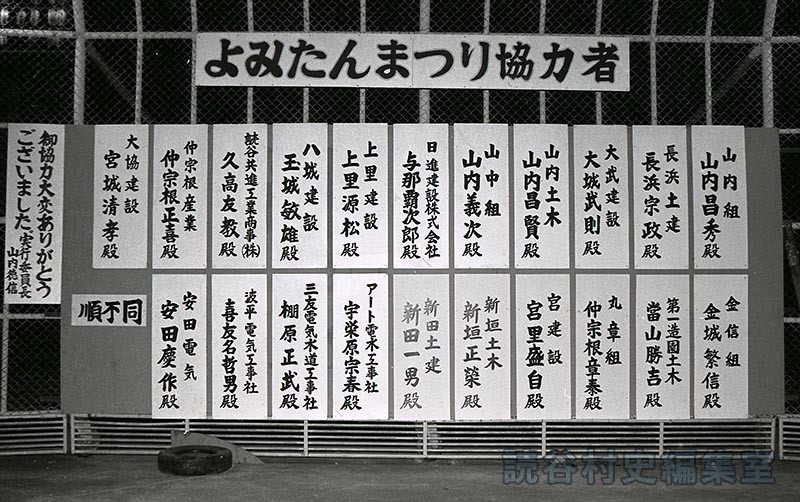 よみたんまつり協力者
山内組
山内昌秀殿
長浜土建
長浜宗政殿
大武建設
大城武則殿
山内土木
山内昌賢殿
山中組
山内義次殿
日進建設株式会社
与那覇次郎殿
上里建設
上里源松殿
八城建設
玉城敏雄殿
読谷共進工業商事(株)
久高友教殿
仲宗根産業
仲宗根正喜殿
大協建設
宮城清孝殿
金信組
金城繁信殿
第一造園土木
當山勝吉殿
丸章組
仲宗根章泰殿
宮建設
宮里盛自殿
新垣土木
新垣正榮殿
新田土建
新田一男殿
アート電水工事社
宇栄原宗春殿
三友電気水道工事社
棚原正武殿
波平電気工事社
喜友名哲男殿
安田電気
安田慶作殿
順不同
御協力大変ありがとう
ございました。実行委員長
山内徳信
読谷村史編集室